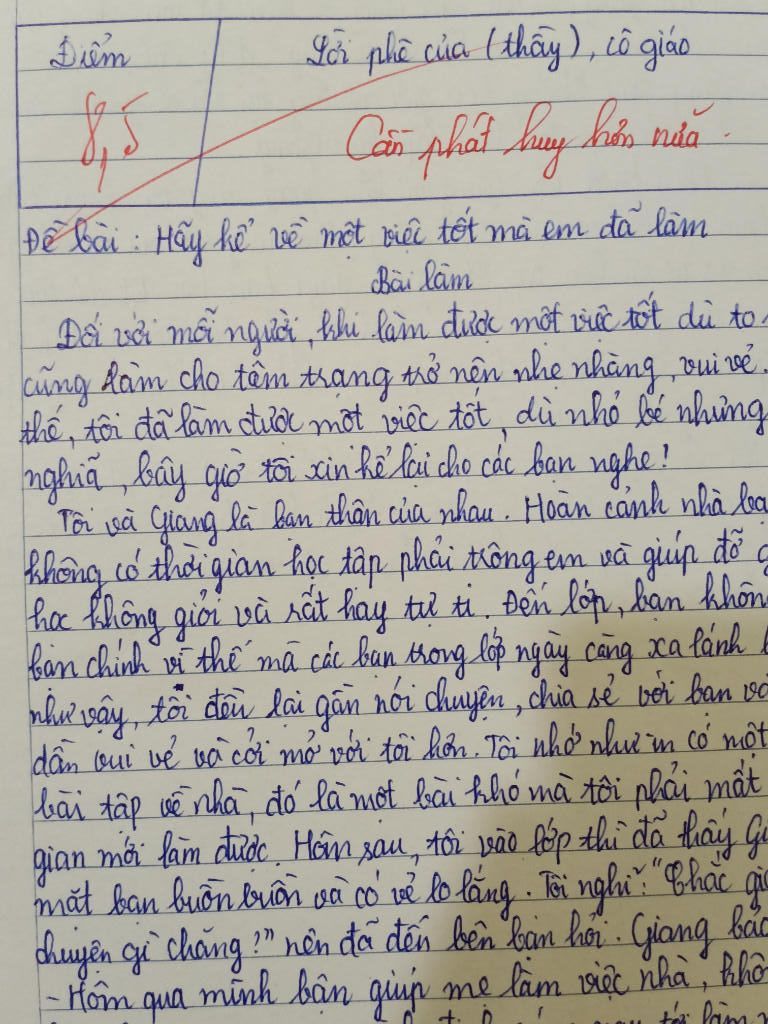 Điểm
Lời phê của (thầy), cô giáo
8,5
Cần phát huy hơn nữa.
Đề bài: Hãy kể về một việc tốt mà em đã làm
Bài làm
Đối với mỗi người, khi làm được một việc tốt dù to
cũng làm cho tâm trạng trở nên nhẹ nhàng, vui vẻ.
thế, tôi đã làm được một việc tốt, dù nhỏ bé nhưng
nghĩa, bây giờ tôi xin kể lại cho các bạn nghe!
Tôi và Giang là bạn thân của nhau. Hoàn cảnh nhà
không có thời gian học tập phải trông em và giúp đỡ
học không giỏi và rất hay tự ti. Đến lớp, bạn
bạn chính vì thế mà các bạn trong lớp ngày càng xa lánh
như vậy, tôi đều lại gần nói chuyện, chia sẻ với bạn
dần vui vẻ và cởi mở với tôi hơn. Tôi nhớ như in có một
bài tập về nhà, đó là một bài khó mà tôi phải mất
gian mới làm được. Hôm sau, tôi vào lớp thì đã thấy
mặt bạn buồn buồn và có vẻ lo lắng. Tôi nghĩ: "Chắc
chuyện gì chăng?" nên đã đến bên bạn hỏi. Giang
- Hôm qua mình bận giúp mẹ làm việc nhà,